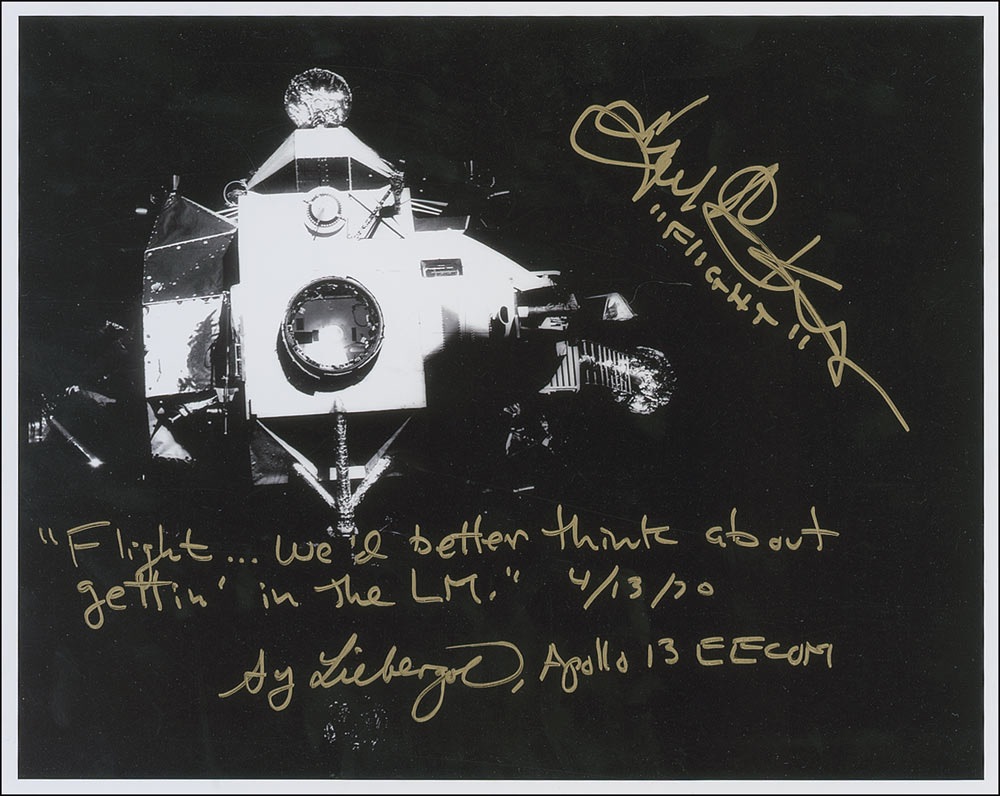 "FLIGHT"
"Flight... we'd better think about
gettin' in the LM." 4/13/70
Sy Liebergot, Apollo 13 EECOM